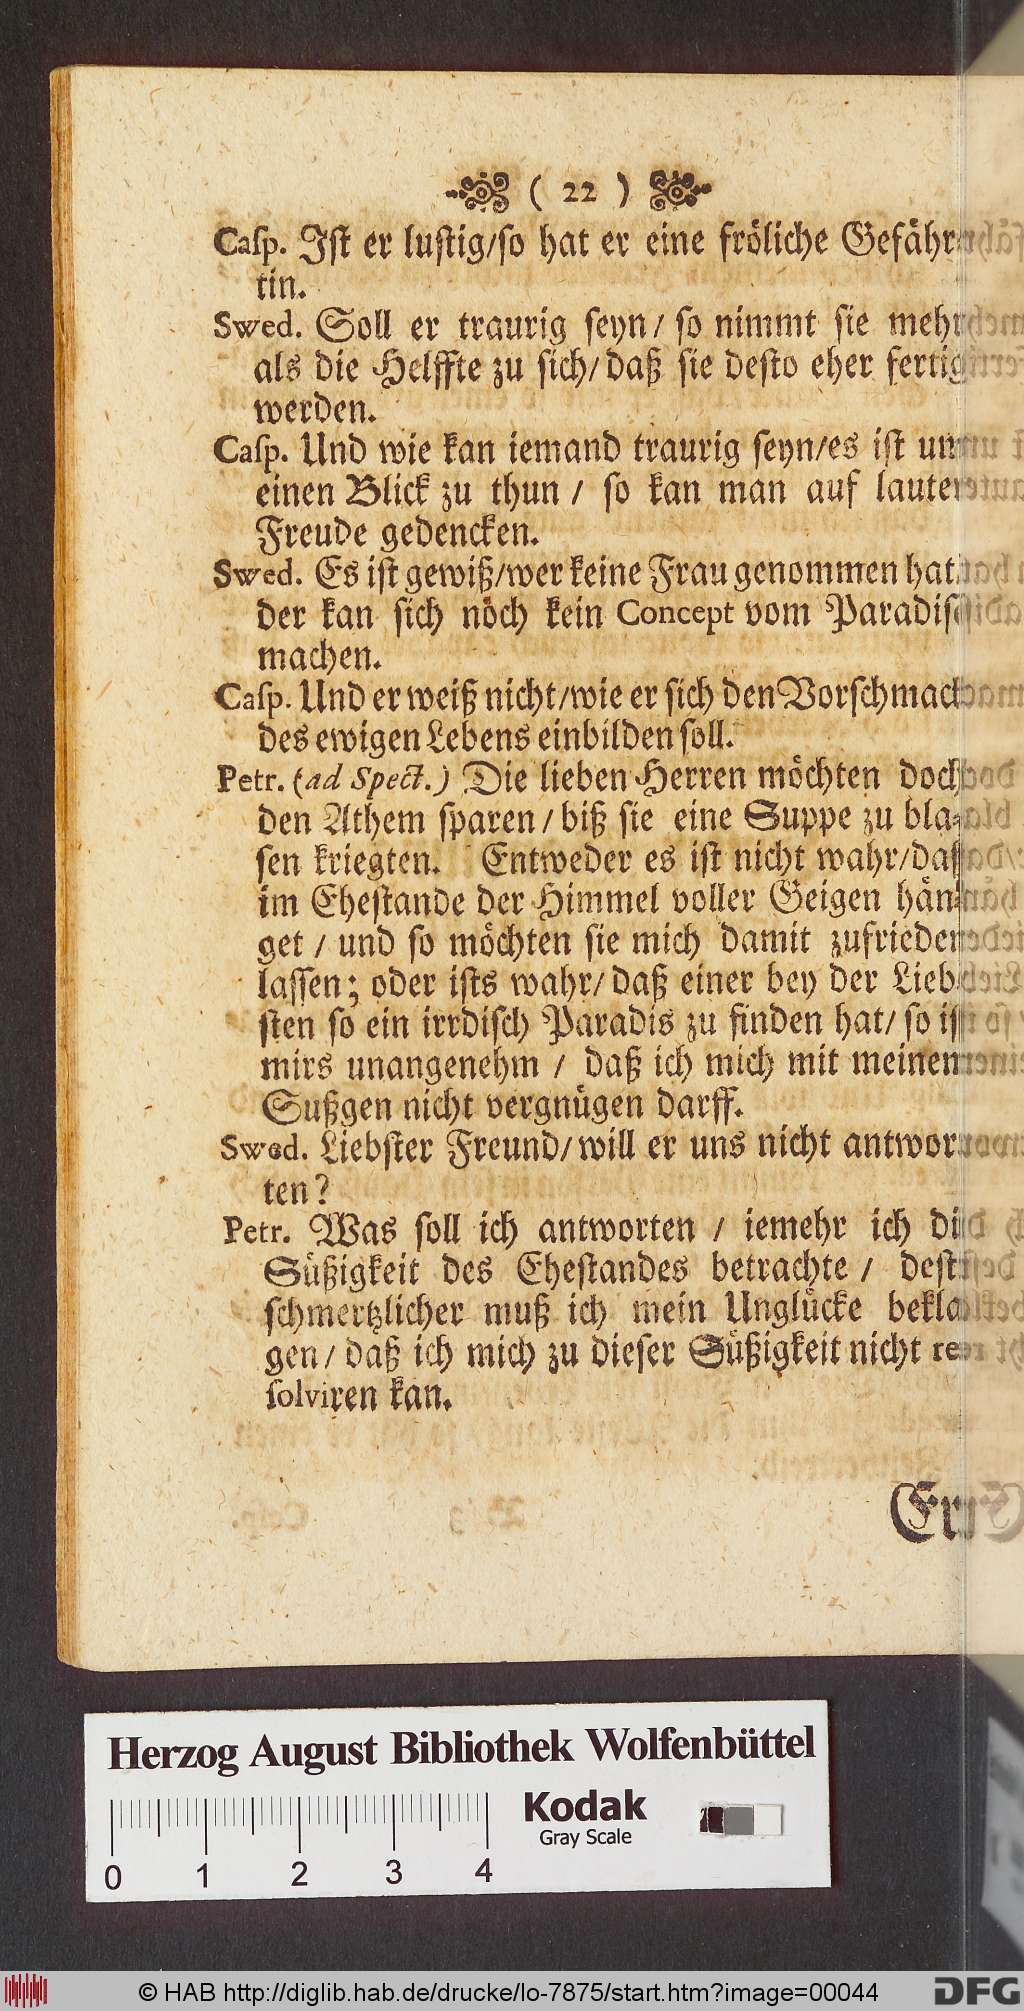 ( 22 )
Casp. Ist er lustig/so hat er eine fröliche Gefähr
tin.
Swed. Soll er traurig seyn/ so nimmt sie mehr
als die Helffte zu sich/ daß sie desto eher fertig
werden.
Casp. Und wie kan iemand traurig seyn/es ist um
einen Blick zu thun / so kan man auf lauter
Freude gedencken.
Swed. Es ist gewiß/wer keine Frau genommen hat
der kan sich noch kein Concept vom Paradise
machen.
Casp. Und er weiß nicht/wie er sich den Vorschmack
des ewigen Lebens einbilden soll.
Petr. (ad Spect.) Die lieben Herren möchten doch
den Athem sparen/ biß sie eine Suppe zu bla-
sen kriegten. Entweder es ist nicht wahr/daß
im Ehestande der Himmel voller Geigen hän-
get / und so möchten sie mich damit zufrieden
lassen; oder ists wahr/ daß einer bey der Lieb
sten so ein irrdisch Paradis zu finden hat/ so ist
mirs unangenehm / daß ich mich mit meinem
Sußgen nicht vergnügen darff.
Swed. Liebster Freund/ will er uns nicht antwor
ten?
Petr. Was soll ich antworten / iemehr ich die
Süßigkeit des Ehestandes betrachte / desto
schmertzlicher muß ich mein Unglücke bekla
gen/ daß ich mich zu dieser Süßigkeit nicht re
solviren kan.
Herzog August Bibliothek Wolfenbüttel
Kodak
Gray Scale
0 1 2 3 4
© HAB http://diglib.hab.de/drucke/lo-7875/start.htm?image=00044
DFG